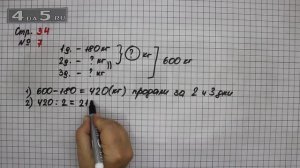 4DA5.RU
Стр. 34
№ 7
1д. – 180 кг
2д. – ? кг
3д. – ? кг
? кг
600 кг
1) 600 – 180 = 420 (кг) продали за 2 и 3 дни
2) 420 : 2 = 21